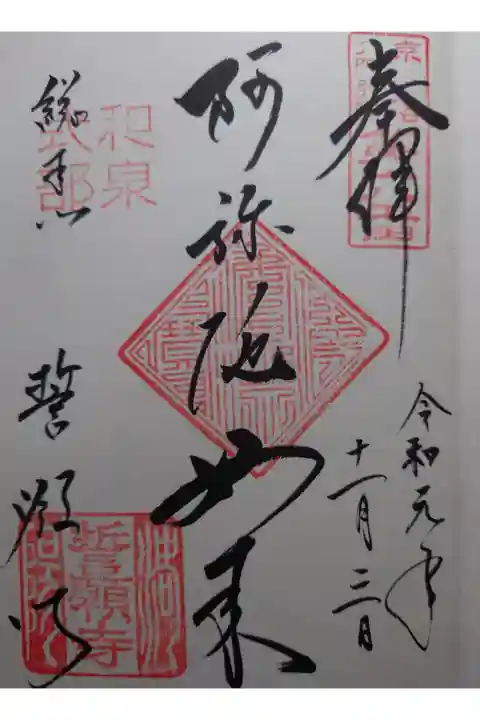 奉拝
令和元年
十一月三日
阿弥陀如来
和泉
式部
総本山
誓願寺
誓願寺